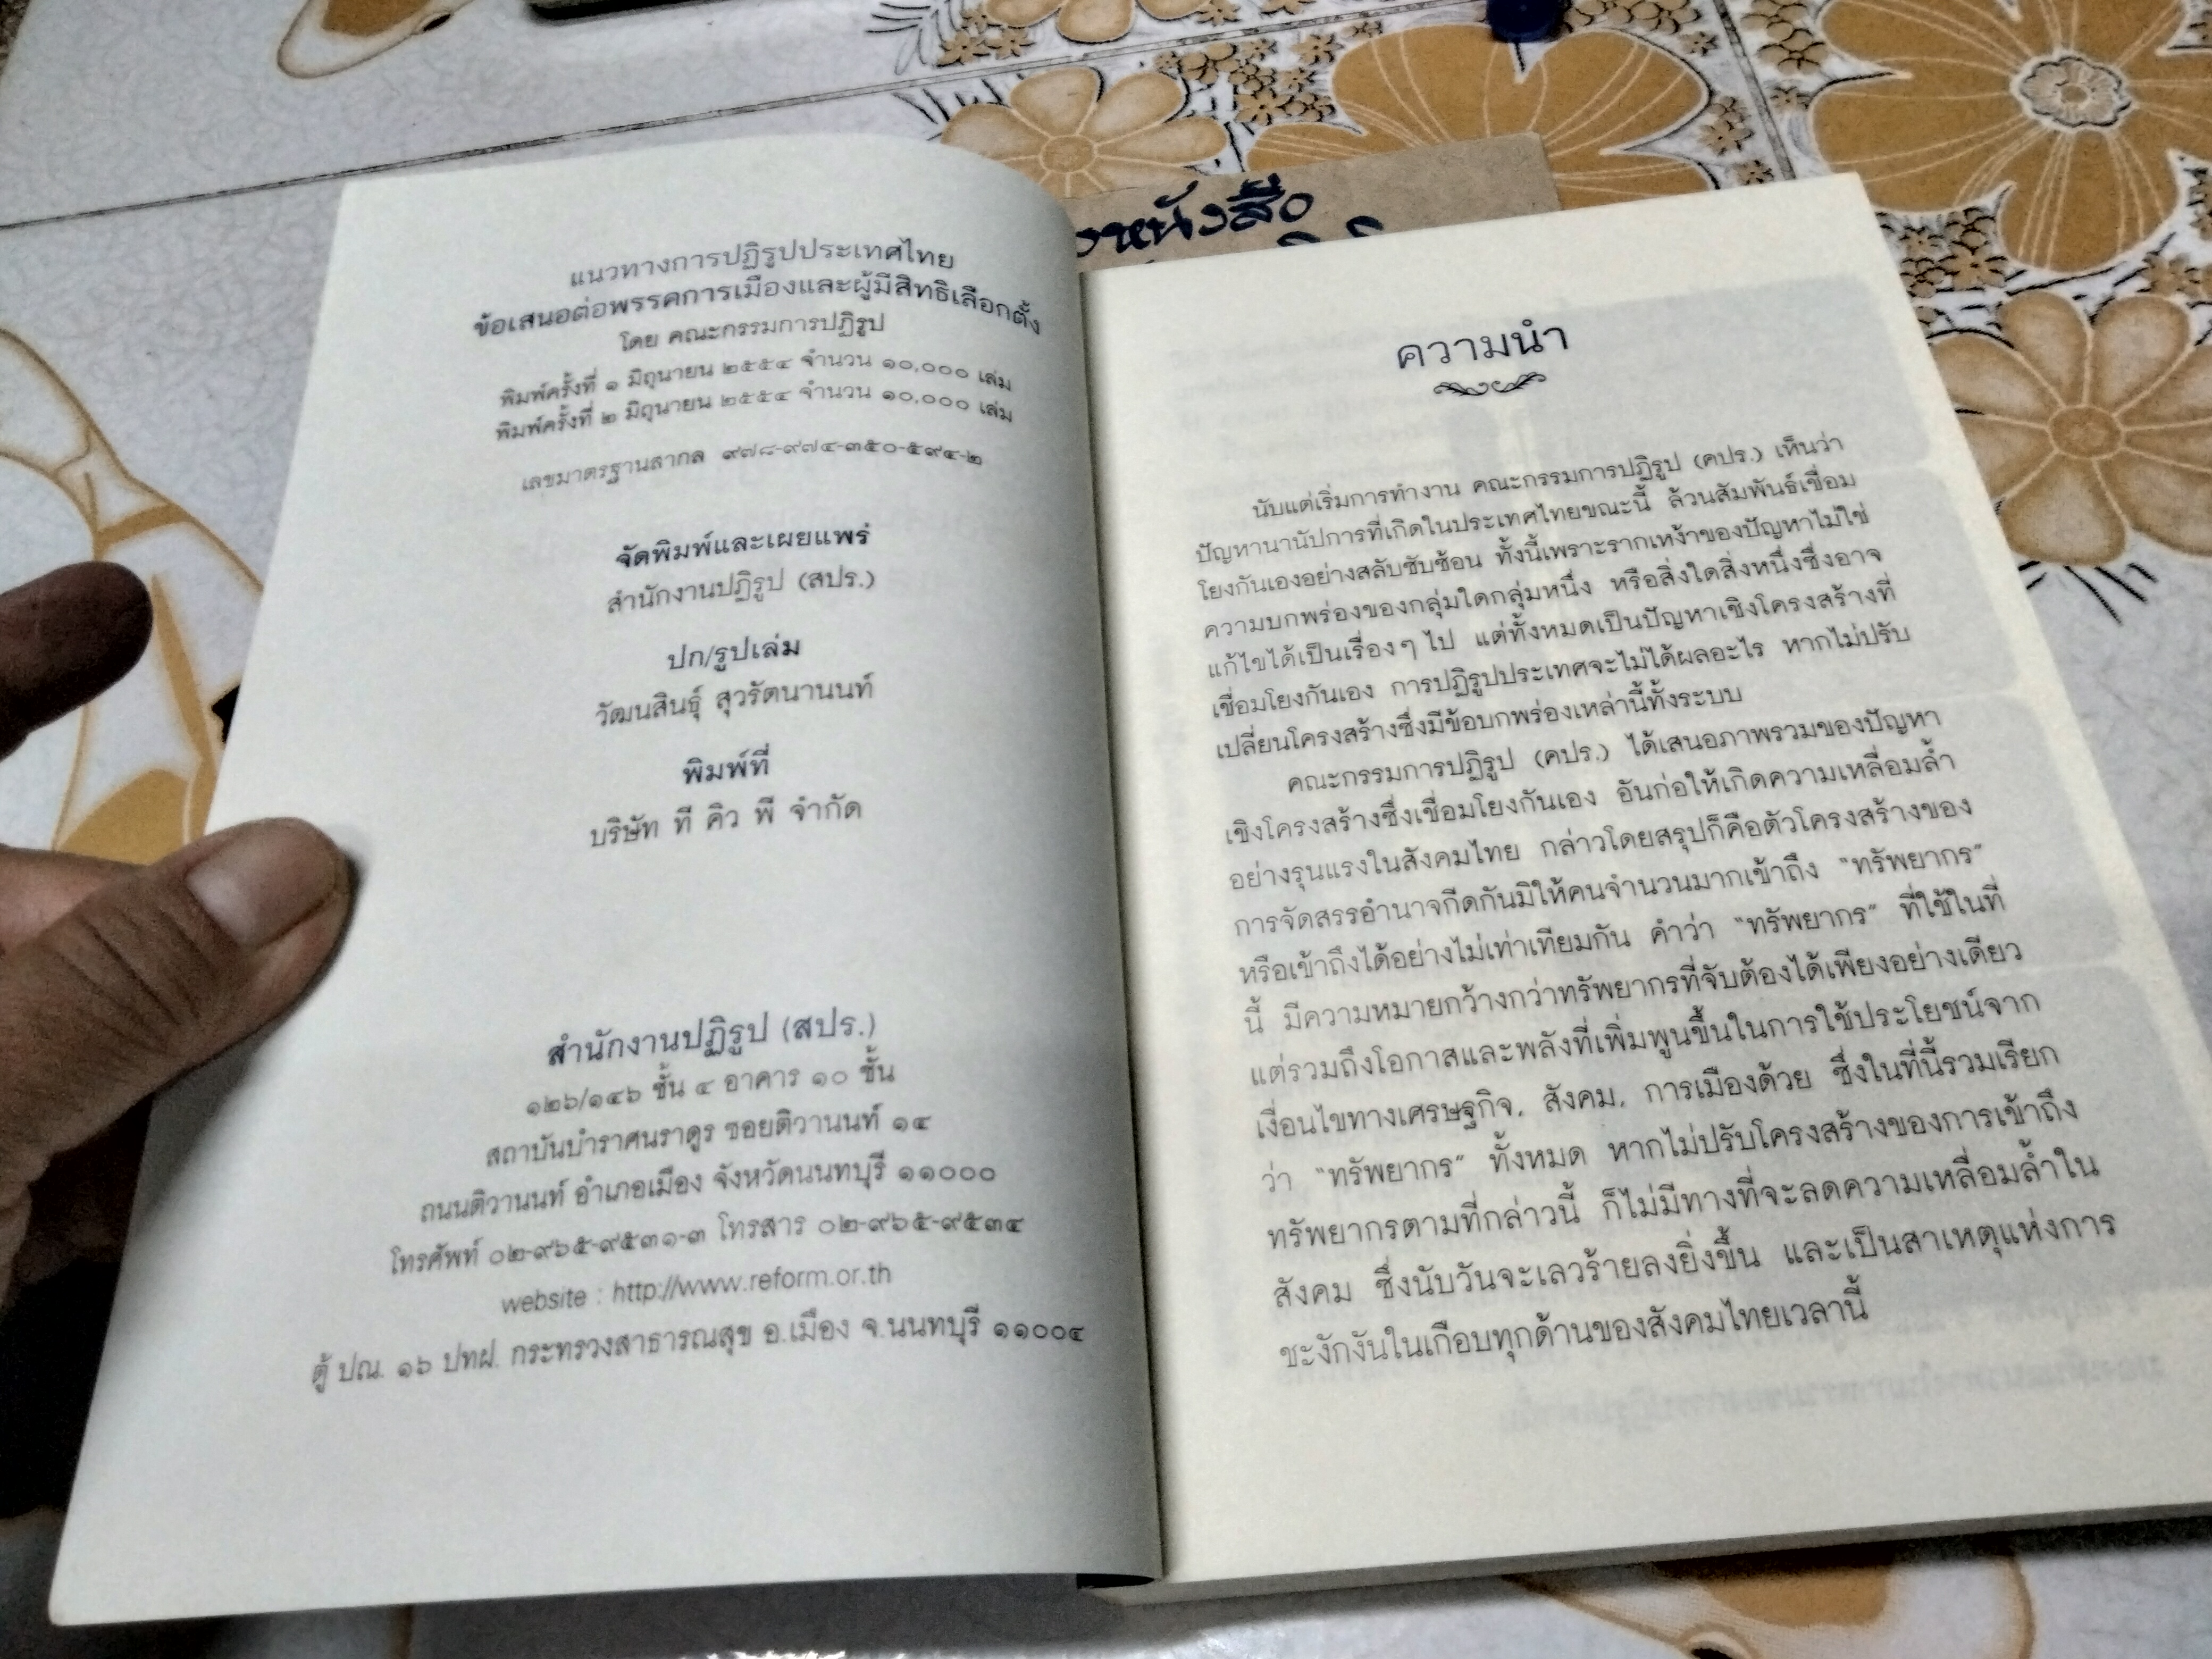 แนวทางการปฏิรูปประเทศไทย
ข้อเสนอต่อพรรคการเมืองและผู้มีสิทธิเลือกตั้ง
โดย คณะกรรมการปฏิรูป
พิมพ์ครั้งที่ ๑ มิถุนายน ๒๕๕๔ จำนวน ๑๐,๐๐๐ เล่ม
พิมพ์ครั้งที่ ๒ มิถุนายน ๒๕๕๔ จำนวน ๑๐,๐๐๐ เล่ม
เลขมาตรฐานสากล ๙๗๘-๙๗๔-๓๕๐-๕๙๔-๒
จัดพิมพ์และเผยแพร่
สำนักงานปฏิรูป (สปร.)
ปก/รูปเล่ม
วัฒนสินธุ์ สุวรัตนานนท์
พิมพ์ที่
บริษัท ที คิว พี จำกัด
สำนักงานปฏิรูป (สปร.)
๑๒๖/๑๔๖ ชั้น ๔ อาคาร ๑๐ ชั้น
สถาบันบำราศนราดูร ซอยติวานนท์ ๑๔
ถนนติวานนท์ อำเภอเมือง จังหวัดนนทบุรี ๑๑๐๐๐
โทรศัพท์ ๐๒-๙๖๕-๙๕๓๑-๓ โทรสาร ๐๒-๙๖๕-๙๕๓๔
website : http://www.reform.or.th
ตู้ ปณ. ๑๖ ปทฝ. กระทรวงสาธารณสุข อ.เมือง จ.นนทบุรี ๑๑๐๐๔
หนังสือ
ความนำ
นับแต่เริ่มการทำงาน คณะกรรมการปฏิรูป (คปร.) เห็นว่า
ปัญหานานัปการที่เกิดในประเทศไทยขณะนี้ ล้วนสัมพันธ์เชื่อม
โยงกันเองอย่างสลับซับซ้อน ทั้งนี้เพราะรากเหง้าของปัญหาไม่ใช่
ความบกพร่องของกลุ่มใดกลุ่มหนึ่ง หรือสิ่งใดสิ่งหนึ่งซึ่งอาจ
แก้ไขได้เป็นเรื่องๆ ไป แต่ทั้งหมดเป็นปัญหาเชิงโครงสร้างที่
เชื่อมโยงกันเอง การปฏิรูปประเทศจะไม่ได้ผลอะไร หากไม่ปรับ
เปลี่ยนโครงสร้างซึ่งมีข้อบกพร่องเหล่านี้ทั้งระบบ
คณะกรรมการปฏิรูป (คปร.) ได้เสนอภาพรวมของปัญหา
เชิงโครงสร้างซึ่งเชื่อมโยงกันเอง อันก่อให้เกิดความเหลื่อมล้ำ
อย่างรุนแรงในสังคมไทย กล่าวโดยสรุปก็คือตัวโครงสร้างของ
การจัดสรรอำนาจกีดกันมิให้คนจำนวนมากเข้าถึง “ทรัพยากร”
หรือเข้าถึงได้อย่างไม่เท่าเทียมกัน คำว่า “ทรัพยากร” ที่ใช้ในที่
นี้ มีความหมายกว้างกว่าทรัพยากรที่จับต้องได้เพียงอย่างเดียว
แต่รวมถึงโอกาสและพลังที่เพิ่มพูนขึ้นในการใช้ประโยชน์จาก
เงื่อนไขทางเศรษฐกิจ, สังคม, การเมืองด้วย ซึ่งในที่นี้รวมเรียก
ว่า “ทรัพยากร” ทั้งหมด หากไม่ปรับโครงสร้างของการเข้าถึง
ทรัพยากรตามที่กล่าวนี้ ก็ไม่มีทางที่จะลดความเหลื่อมล้ำใน
สังคม ซึ่งนับวันจะเลวร้ายลงยิ่งขึ้น และเป็นสาเหตุแห่งการ
ชะงักงันในเกือบทุกด้านของสังคมไทยเวลานี้